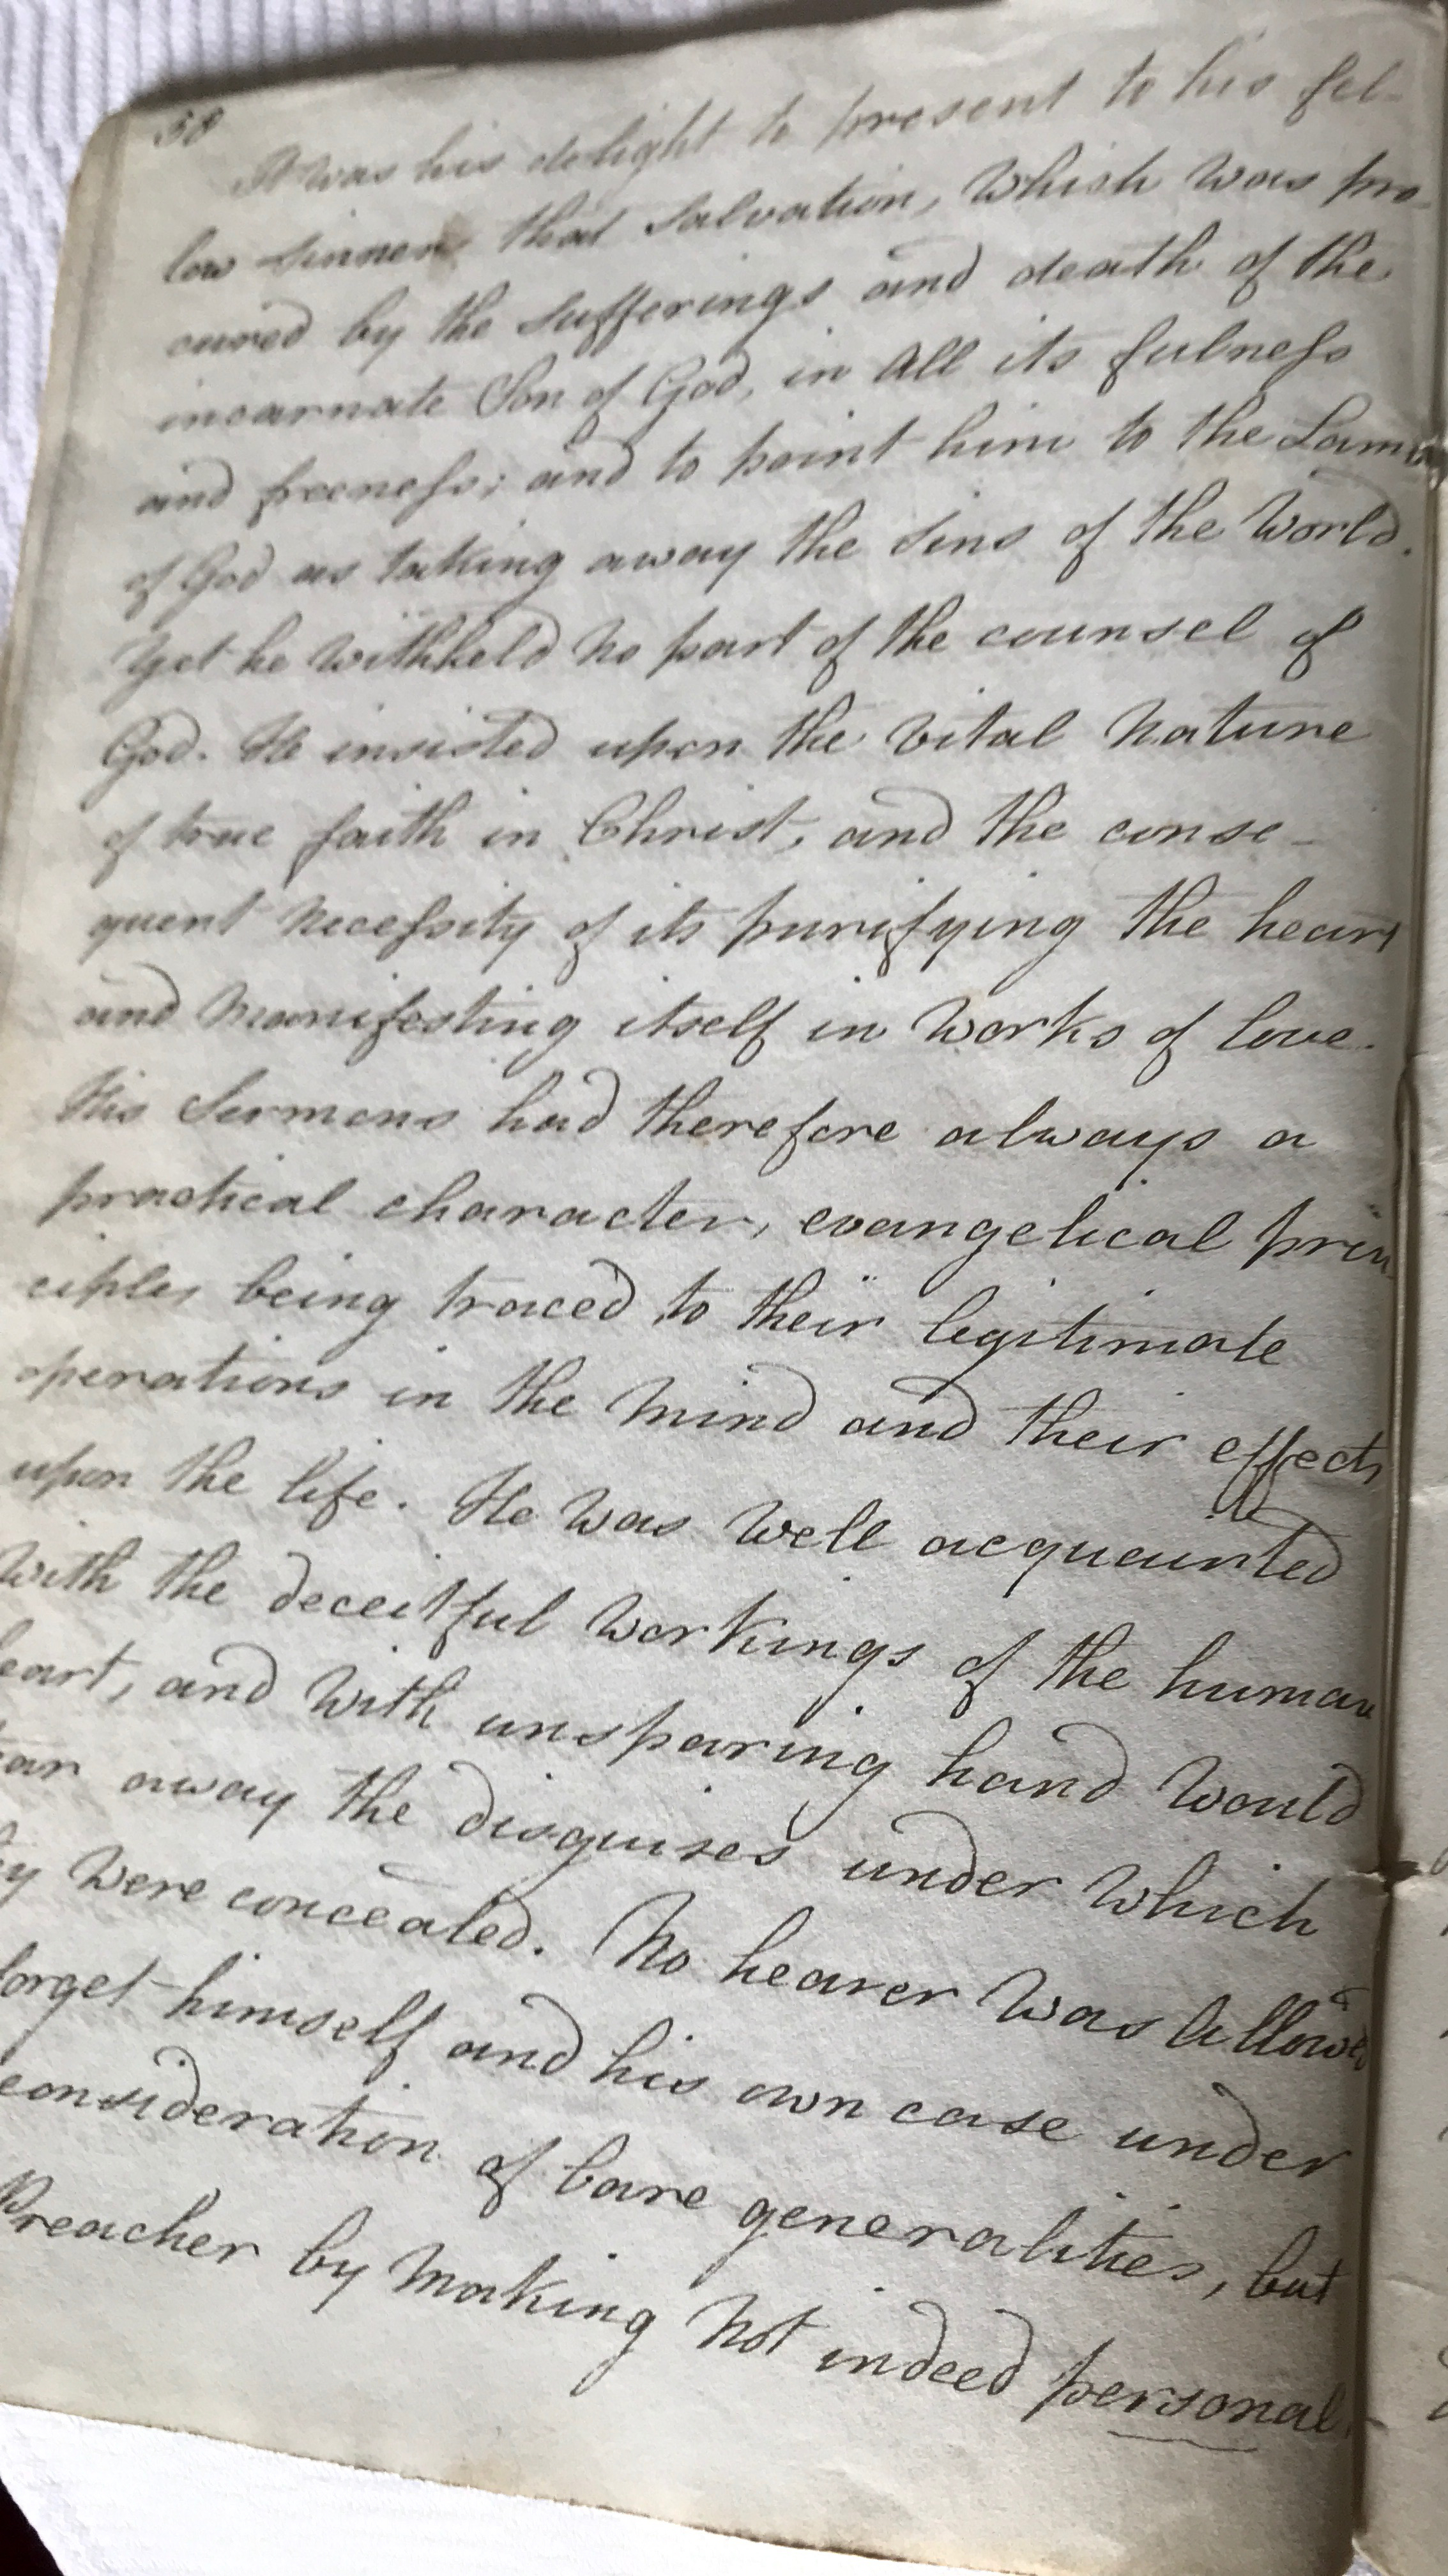 58
It was his delight to present to his fel-
low sinners that Salvation, which was pro-
cured by the Sufferings and death of the
incarnate Son of God, in all its fulneſs
and freeneſs; and to point him to the Lamb
of God as taking away the Sins of the World.
Yet he withheld no part of the counsel of
God. He insisted upon the vital nature
of true faith in Christ, and the conse-
quent neceſsity of its purifying the heart
and manifesting itself in works of love.
His Sermons had therefore always a
practical character, evangelical prin-
ciples being traced to their legitimate
operations in the mind and their effects
upon the life. He was well acquainted
with the deceitful workings of the human
eart, and with unsparing hand would
ear away the disguises under which
ey were concealed. No hearer was allowed
forget himself and his own case under
consideration of bare generalities, but
Preacher by making not indeed personal